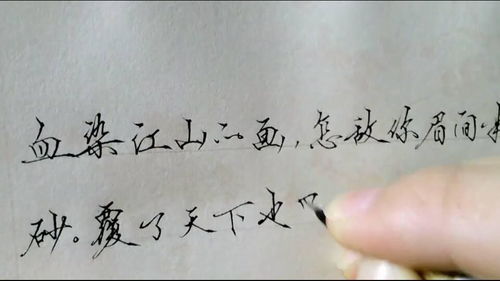 血染江山的画,怎敌你眉间
砂。覆了天下也